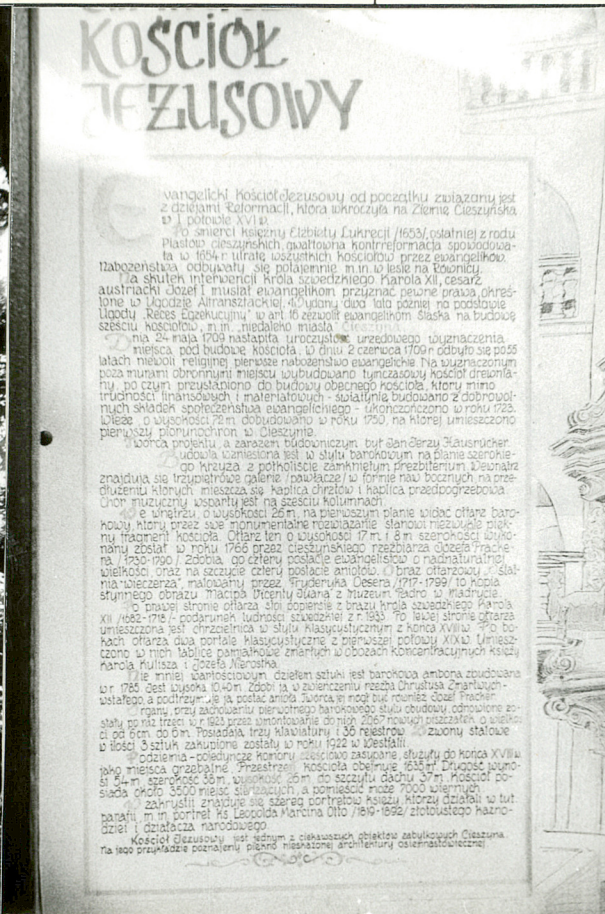 KOŚCIÓŁ
JEZUSOWY
Ewangelicki Kościół Jezusowy od początku związany jest
z dziejami Reformacji, która wkroczyła na Ziemię Cieszyńską
w I połowie XVI w.
Po śmierci księżny Elżbiety Lukrecji /1653/, ostatniej z rodu
Piastów cieszyńskich, gwałtowna kontrreformacja spowodowa-
ła w 1654 r. utratę wszystkich kościołów przez ewangelików.
Nabożeństwa odbywały się potajemnie m.in. w lesie na Równicy.
Na skutek interwencji króla szwedzkiego Karola XII, cesarz
austriacki Józef I musiał ewangelikom przyznać pewne prawa, okreś-
lone w Ugodzie Altransztackiej. Wydany dwa lata później na podstawie
Ugody "Reces Egzekucyjny" w art. 16 zezwolił ewangelikom Śląska na budowę
sześciu kościołów, m.in. "niedaleko miasta" Cieszyna.
Dnia 24 maja 1709 nastąpiła uroczystość urzędowego wyznaczenia
miejsca pod budowę kościoła. W dniu 2 czerwca 1709 r. odbyło się po 55
latach niewoli religijnej pierwsze nabożeństwo ewangelickie. Na wyznaczonym
poza murami obronnymi miejscu wybudowano tymczasowy kościół drewnia-
ny, po czym przystąpiono do budowy obecnego kościoła, który mimo
trudności finansowych i materiałowych - świątynię budowano z dobrowol-
nych składek społeczeństwa ewangelickiego - ukończończono w roku 1723.
Wieżę o wysokości 72 m. dobudowano w roku 1750, na której umieszczono
pierwszy piorunochron w Cieszynie.
Twórcą projektu, a zarazem budowniczym był Jan Jerzy Hausrucker.
Budowla wzniesiona jest w stylu barokowym na planie szerokie-
go krzyża z półkoliście zamkniętym prezbiterium. Wewnątrz
znajdują się trzypiętrowe galerie /pawłacze/ w formie naw bocznych na prze-
dłużeniu których mieszczą się kaplica chrztów i kaplica przedpogrzebowa.
Chór muzyczny wsparty jest na sześciu kolumnach.
We wnętrzu, o wysokości 26 m, na pierwszym planie widać ołtarz baro-
kowy, który przez swe monumentalne rozwiązanie stanowi niezwykle pięk-
ny fragment kościoła. Ołtarz ten o wysokości 17 m. i 8 m. szerokości wyko-
nany został w roku 1766 przez cieszyńskiego rzeźbiarza Józefa Pracke-
ra /1730-1790/. Zdobią go cztery postacie ewangelistów o nadnaturalnej
wielkości oraz na szczycie cztery postacie aniołów. Obraz ołtarzowy - "Ostat-
nia wieczerza", malowany przez Fryderyka Oesera /1717-1799/ to kopia
słynnego obrazu Macipa Vicenty Juana z Muzeum Padro w Madrycie.
Po prawej stronie ołtarza stoi popiersie z brązu króla szwedzkiego Karola
XII /1682-1718/ - podarunek ludności szwedzkiej z r. 1933. Po lewej stronie ołtarza
umieszczona jest chrzcielnica w stylu klasycystycznym z końca XVIII w. Po bo-
kach ołtarza dwa portale klasycystyczne z pierwszej połowy XIX w. Umiesz-
czono w nich tablice pamiątkowe zmarłych w obozach koncentracyjnych księży
Karola Kulisza i Józefa Nierostka.
Nie mniej wartościowym dziełem sztuki jest barokowa ambona zbudowana
w r. 1785. Jest wysoka 10,40 m. Zdobi ją w zwieńczeniu rzeźba Chrystusa Zmartwych-
wstałego, a podtrzymuje ją postać anioła. Twórcą jej mógł być również Józef Pracker.
Organy, przy zachowaniu pierwotnego barokowego stylu obudowy, odnowione zo-
stały po raz trzeci w r. 1923 przez wmontowanie do nich 2067 nowych piszczałek o wielkoś-
ci od 6 cm. do 6 m. Posiadają trzy klawiatury i 36 rejestrów. Dzwony stalowe
w ilości 3 sztuk zakupione zostały w roku 1922 w Westfalii.
Podziemia - pojedyncze komory częściowo zasypane, służyły do końca XVIII w.
jako miejsca grzebalne. Przestrzeń kościoła obejmuje 1635 m². Długość wyno-
si 54 m. szerokość 38 m, wysokość 26 m. do szczytu dachu 37 m. Kościół po-
siada około 3500 miejsc siedzących, a pomieścić może 7000 wiernych.
W zakrystii znajduje się szereg portretów księży, którzy działali w tut.
parafii, m.in. portret ks. Leopolda Marcina Otto /1819-1892/ złotoustego kazno-
dziei i działacza narodowego.
Kościół Jezusowy jest jednym z ciekawszych obiektów zabytkowych Cieszyna.
Na jego przykładzie poznajemy piękno nieskażonej architektury osiemnastowiecznej.